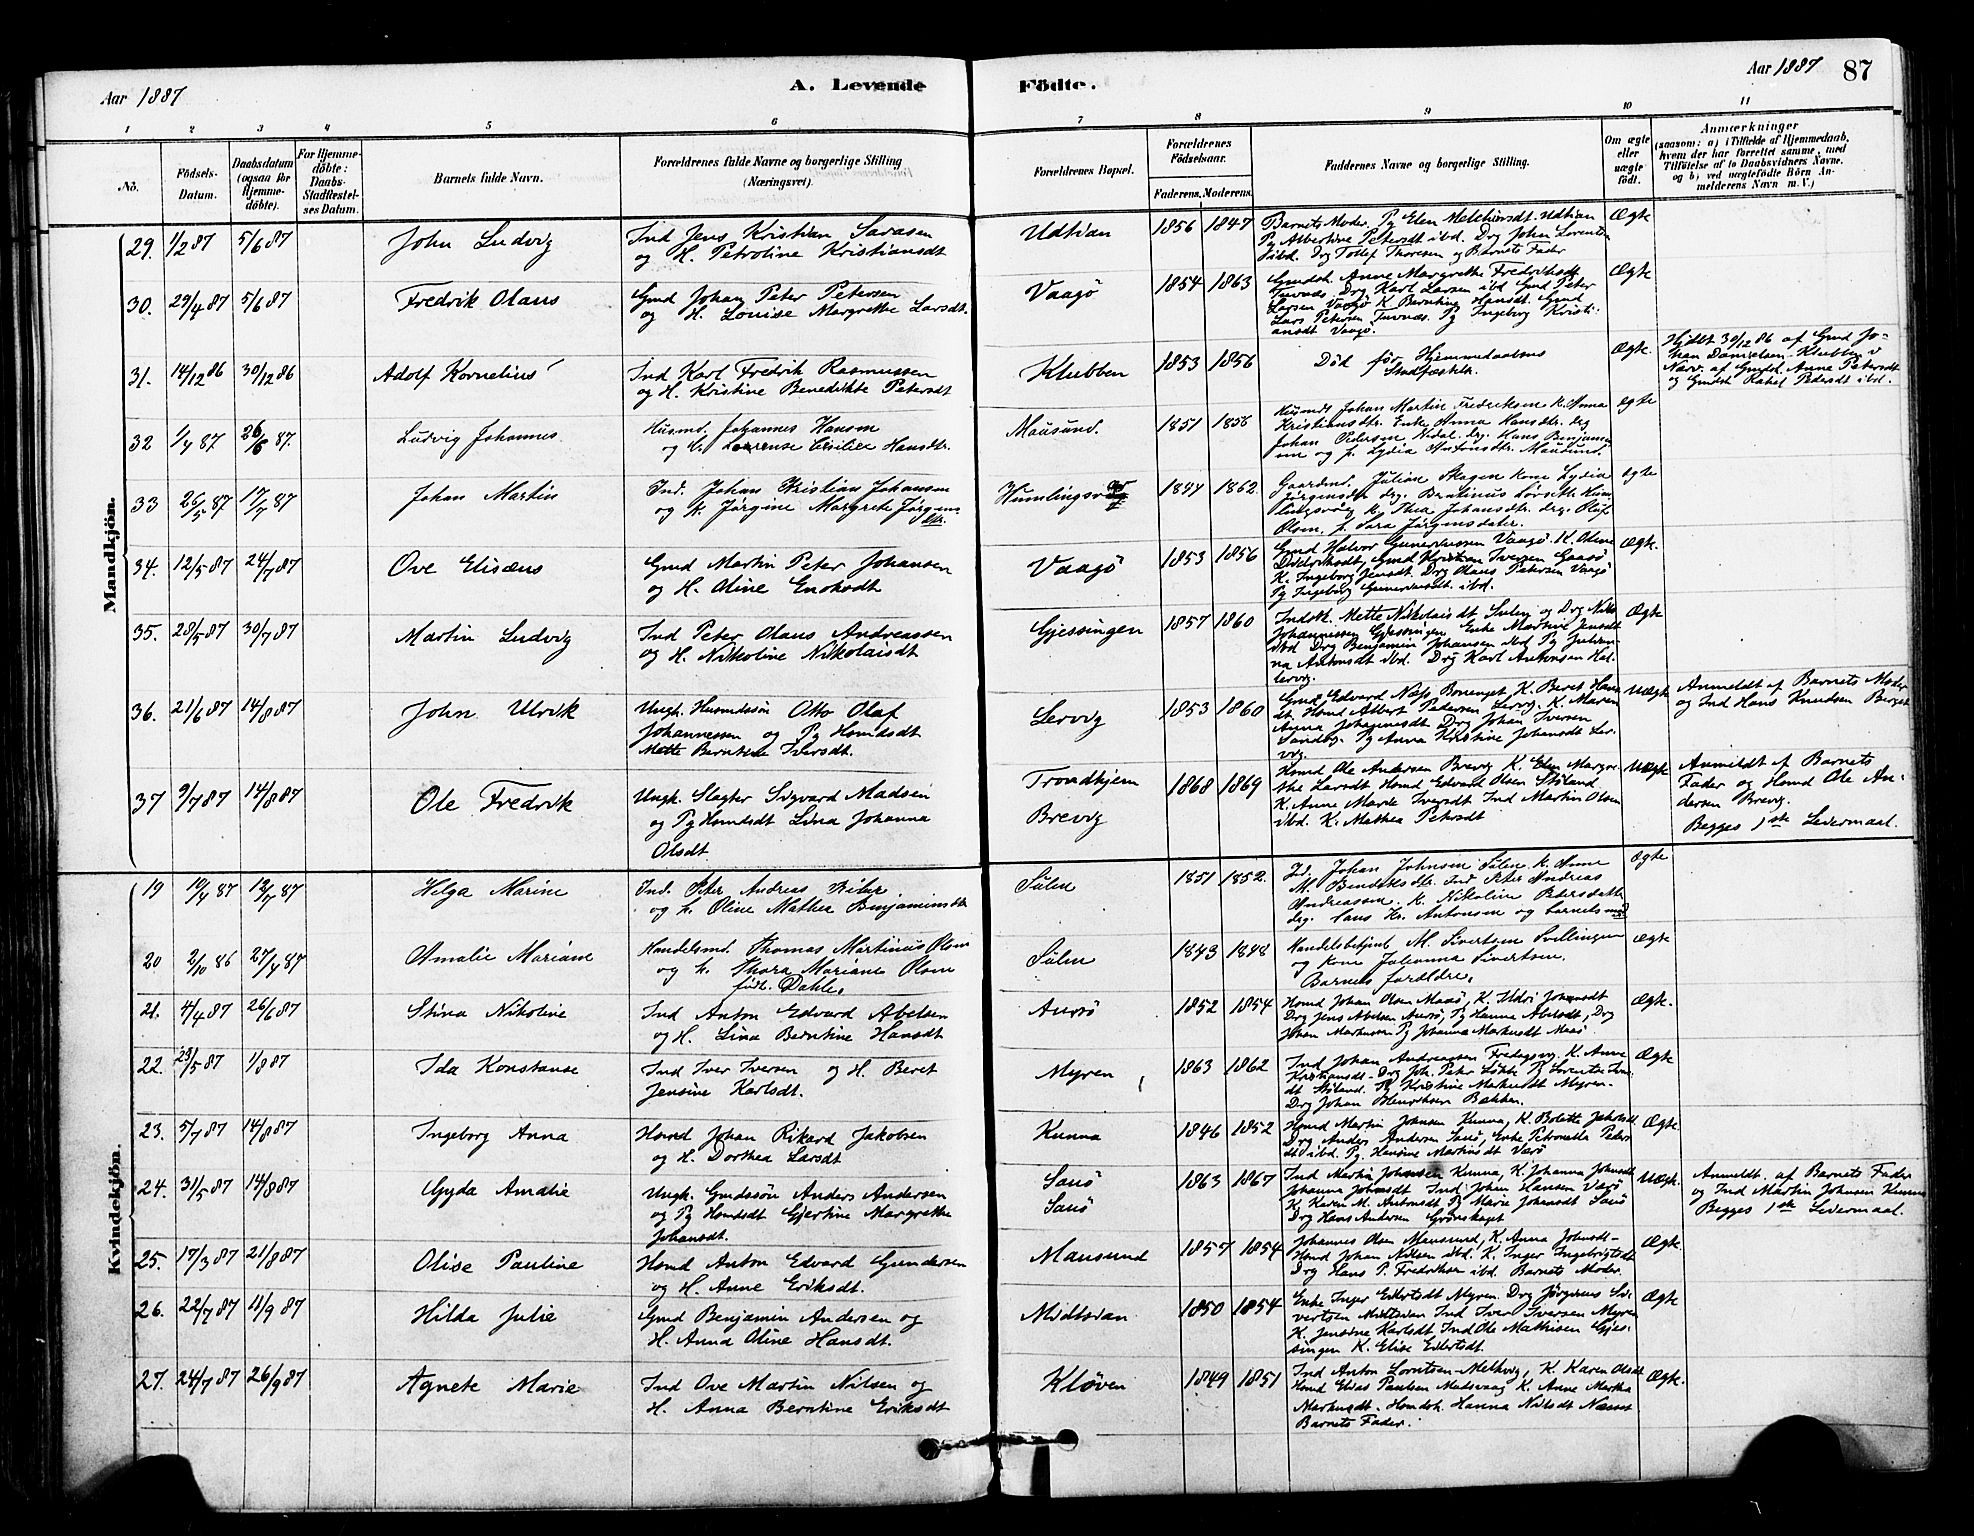 Aar 1887
A. Levende
Födte.
Aar 1887
87
1 2 3 4 5 6 7 8 9 10 11
No.
Födsels-
Datum.
Daabsdatum
(ogsaa for
Hjemme-
döbte).
For Hjemme-
döbte:
Daabs-
Stadfæstel-
ses Datum.
Barnets fulde Navn.
Forældrenes fulde Navne og borgerlige Stilling
(Næringsvei).
Forældrenes Bopæl.
Forældrenes
Födselsaar.
Faderens. Moderens.
Faddernes Navne og borgerlige Stilling.
Om ægte
eller
uægte
födt.
Anmærkninger
(saasom: a) i Tilfælde af Hjemmedaab,
hvem der har forrettet samme, med
Tilföielse af to Daabsvidners Navne,
og b) ved uægtefödte Börn An-
melderens Navn m. V.)
Mandkjön.
29. 1/2 87 5/6 87 John Ludvig
Ind Jens Kristian Sarasen
og H. Petroline Kristiansdt
Udtian 1856 1847
Barnets Moder. Pg Elen Melchiorsdt Udtian
Pg Albertine Petersdt ibd. Drg Johan Lorentsn
ibd. Drg Tollef Thoresen og Barnets Fader
Ægte
30. 29/4 87 5/6 87 Fredrik Olaus
Gmd Johan Peter Petersen
og H. Louise Margrethe Larsdt.
Vaagö 1854 1863
Gmdsk. Anne Margrethe Fredriksdt
Tuvnæs. Drg Karl Larsen ibd Gmd Peter
Larsen Vaagö K. Berntine Hansdt. Gmd
Lars Petersen Tuvnæs. Pg Ingeborg Kristi-
ansdt Vaagö.
Ægte
31. 14/12 86 30/12 86 Adolf Kornelius
Ind Karl Fredrik Rasmussen
og H. Kristine Benedikte Petersdt
Klubben 1853 1856
Död för Hjemmedaabens
Stadfæstelse
Ægte.
Hjdöbt 30/12 86 af Gmd Jo-
han Danielsen Klubben i
Nærv. af Gmdsk. Anne Petersdt
og Gmdsk Rakel Pedersdt ibd.
32 1/4 87 26/6 87. Ludvig Johannes
Husmd. Johannes Hansen
og h. Lorense Cecilie Hansdtr.
Mausund. 1851 1856
Husmdt Johan Martin Fredriksen k. Anna
Kristiansdtr. Enke Anna Hansdtr. drg
Johan Pedersen Nidal. drg. Hans Benjamin-
sen og p. Lydia Antonsdtr. Mausund.
ægte
33 26/5 87 17/7 87 Johan Martin
Ind. Johan Kristian Johansen
og h. Jörgine Margrete Jörgens-
dtr.
Humlingsvåg 1847 1862
Gaardmd. Julian Skagen kone Lydia
Jörgensdtr drg. Berntinus Lövseth Hum-
lingsvåg k. Thea Johansdtr. drg. Oluf
Olsen, p. Sara Jörgensdater.
ægte
34. 12/5 87 24/7 87 Ove Elisæus
Gmd Martin Peter Johansen
og H. Oline Enoksdt
Vaagö 1853 1856
Gmd Halvor Gunerussen Vaagö. K. Oline
Didriksdt, Gmd Kristian Iversen Gaasö
K. Ingeborg Jensdt. Drg Olaus Petersen Vaagö
Pg Ingeborg Gunerusdt. ibd.
Ægte.
35. 28/5 87 30/7 87 Martin Ludvig
Ind Peter Olaus Andreassen
og H. Nikoline Nikolaisdt
Gjessingen 1857 1860
Indsk. Mette Nikolaisdt Sulen og Drg Nils
Johannessen Gjessingen Enke Martine Jensdt
ibd Drg Benjamin Johansen ibd Pg Julian-
na Antonsdt ibd. Drg Karl Antonsen Kal-
lervig.
Ægte
36. 21/6 87 14/8 87 John Ulrik
Ungk. Husmdssön Otto Olaf
Johannessen og Pg Hsmdsdt
Mette Berntine Iversdt.
Lervig 1853 1860
Gmd Edvard Næss Bonenget K. Beret Hans-
dt. Hsmd Albert Pedersen Lervig. K. Maren
Anna Johannesdt Drg Johan Iversen
Sandvig. Pg Anna Kristine Johansdt Ler-
vig.
Uægte
Anmeldt af Barnets Moder
og Ind Hans Knudsen Berget
37 9/7 87 14/8 87 Ole Fredrik
Ungk. Slagter Sigvard Madsen
og Pg Hsmdsdt Lina Johanna
Olsdt.
Trondhjem
Brevig
1868 1869
Hsmd Ole Andersen Brevig K. Elen Margre-
the Larsdt Hsmd Edvard Olsen Stöland
K. Anne Marie Iversdt Ind Martin Olsen
ibd. K. Mathea Petersdt
Uægte
Anmeldt af Barnets
Fader og Hsmd Ole An-
dersen Brevig.
Begges 1ste Leiermaal.
Kvindekjön.
19 19/4 87 12/7 87 Helga Marine
Ind. Peter Andreas
og h. Oline Mathea Benjaminsdtr
Sulen 1851 1852.
Id. Johan Johnsen Sulen k. Anne
M. Bendiksdtr. Ind Peter Andreas
Andreassen. k. Nikoline
drg. Hans Kr. Antonsen og barnets mod
ægte
20 2/10 86 27/4 87 Amalie Mariane
Handelsmd. Thomas Martinus Olsen
og h. Thora Mariane Olsen
född. Dahle.
Sulen 1843 1848
Handelsbetjent M. Sivertsen Svellingen
og kone Johanna Sivertsen.
Barnets forældre.
ægte
21. 4/4 87 26/6 87 Stina Nikoline
Ind Anton Edvard Abelsen
og H. Lina Berntine Hansdt
Aursö 1852 1854
Hsmd Johan Olsen Maasö, K. Johansdt
Drg Jens Abelsen Aursö, Pg Hanna Abelsdt, Drg
Johan Markussen Pg Johanna Markusdt Maasö
Ægte.
22. 23/5 87 1/8 87 Ida Konstanse
Ind Iver Iversen og H. Beret
Jensine Karlsdt.
Myren 1863 1862
Ind Johan Andreassen Fredagsvig. K. Anne
Kristiansdt. Drg Joh. Peter Pg Lorentse Iver-
dt Stöland. Pg Kristine Markusdt Myren.
Drg Johan Henriksen Bakken.
Ægte
23. 5/7 87 14/8 87 Ingeborg Anna
Hsmd Johan Rikard Jakobsen
og H. Dorthea Larsdt
Kunna 1846 1852
Hsmd Martin Johnsen Kunna, K. Bolette Jakobsdt
Drg Anders Andersen Sauö, Enke Petronella Peders-
dt ibd. Pg Hensine Martinsdt Varö
Ægte
24. 31/5 87 14/8 87 Gyda Amalie
Ungk. Gmdssön Anders Andersen
og Pg Hsmdsdt Gjertine Margrethe
Johansdt.
Sauö
Sauö
1863 1867
Ind Martin Johansen Kunna, K. Johanna Johnsdt
Johanna Johansdt Ind Johan Hansen Varö
K. Karen M. Antonsdt Pg Marie Johansdt Sauö
Drg Hans Andersen Grönskaget
Uægte.
Anmeldt. af Barnets Fader
og Ind Martin Johnsen Kunna
Begges 1ste Leiermaal.
25. 17/3 87 21/8 87 Olise Pauline
Hsmd Anton Edvard Gundersen
og H. Anne Eriksdt.
Mausund 1857 1854
Johannes Olsen Mausund, K. Anna Johnsdt-
Hsmd Johan Nilsen ibd. K. Inger Ingebrigtsdt
Drg Hans P. Fredriksen ibd. Barnets Moder.
Ægte.
26. 22/7 87 11/9 87 Hilda Julie
Gmd Benjamin Andersen og
H. Anna Oline Hansdt.
Midtsian 1850 1854
Enke Inger Eilertsdt Myren. Drg Jörginus Si-
vertsen Midtsian Ind Iver Iversen Myren
K. Jensine Karlsdt. Ind Ole Mathisen Gjes-
singen K. Elise Eilertsdt.
Ægte
27. 24/7 87 26/9 87 Agnete Marie
Ind Ove Martin Nilsen og
H. Anna Berntine Eriksdt
Klöven 1849 1851
Ind Anton Lorntsen Melkvig, K. Karen Olsdt
Hsmd Elias Paulsen Madsvaag K. Anne Martha
Markusdt. Hsmdsk. Hanna Nilsdt Næsset
Barnets Fader.
Ægte.